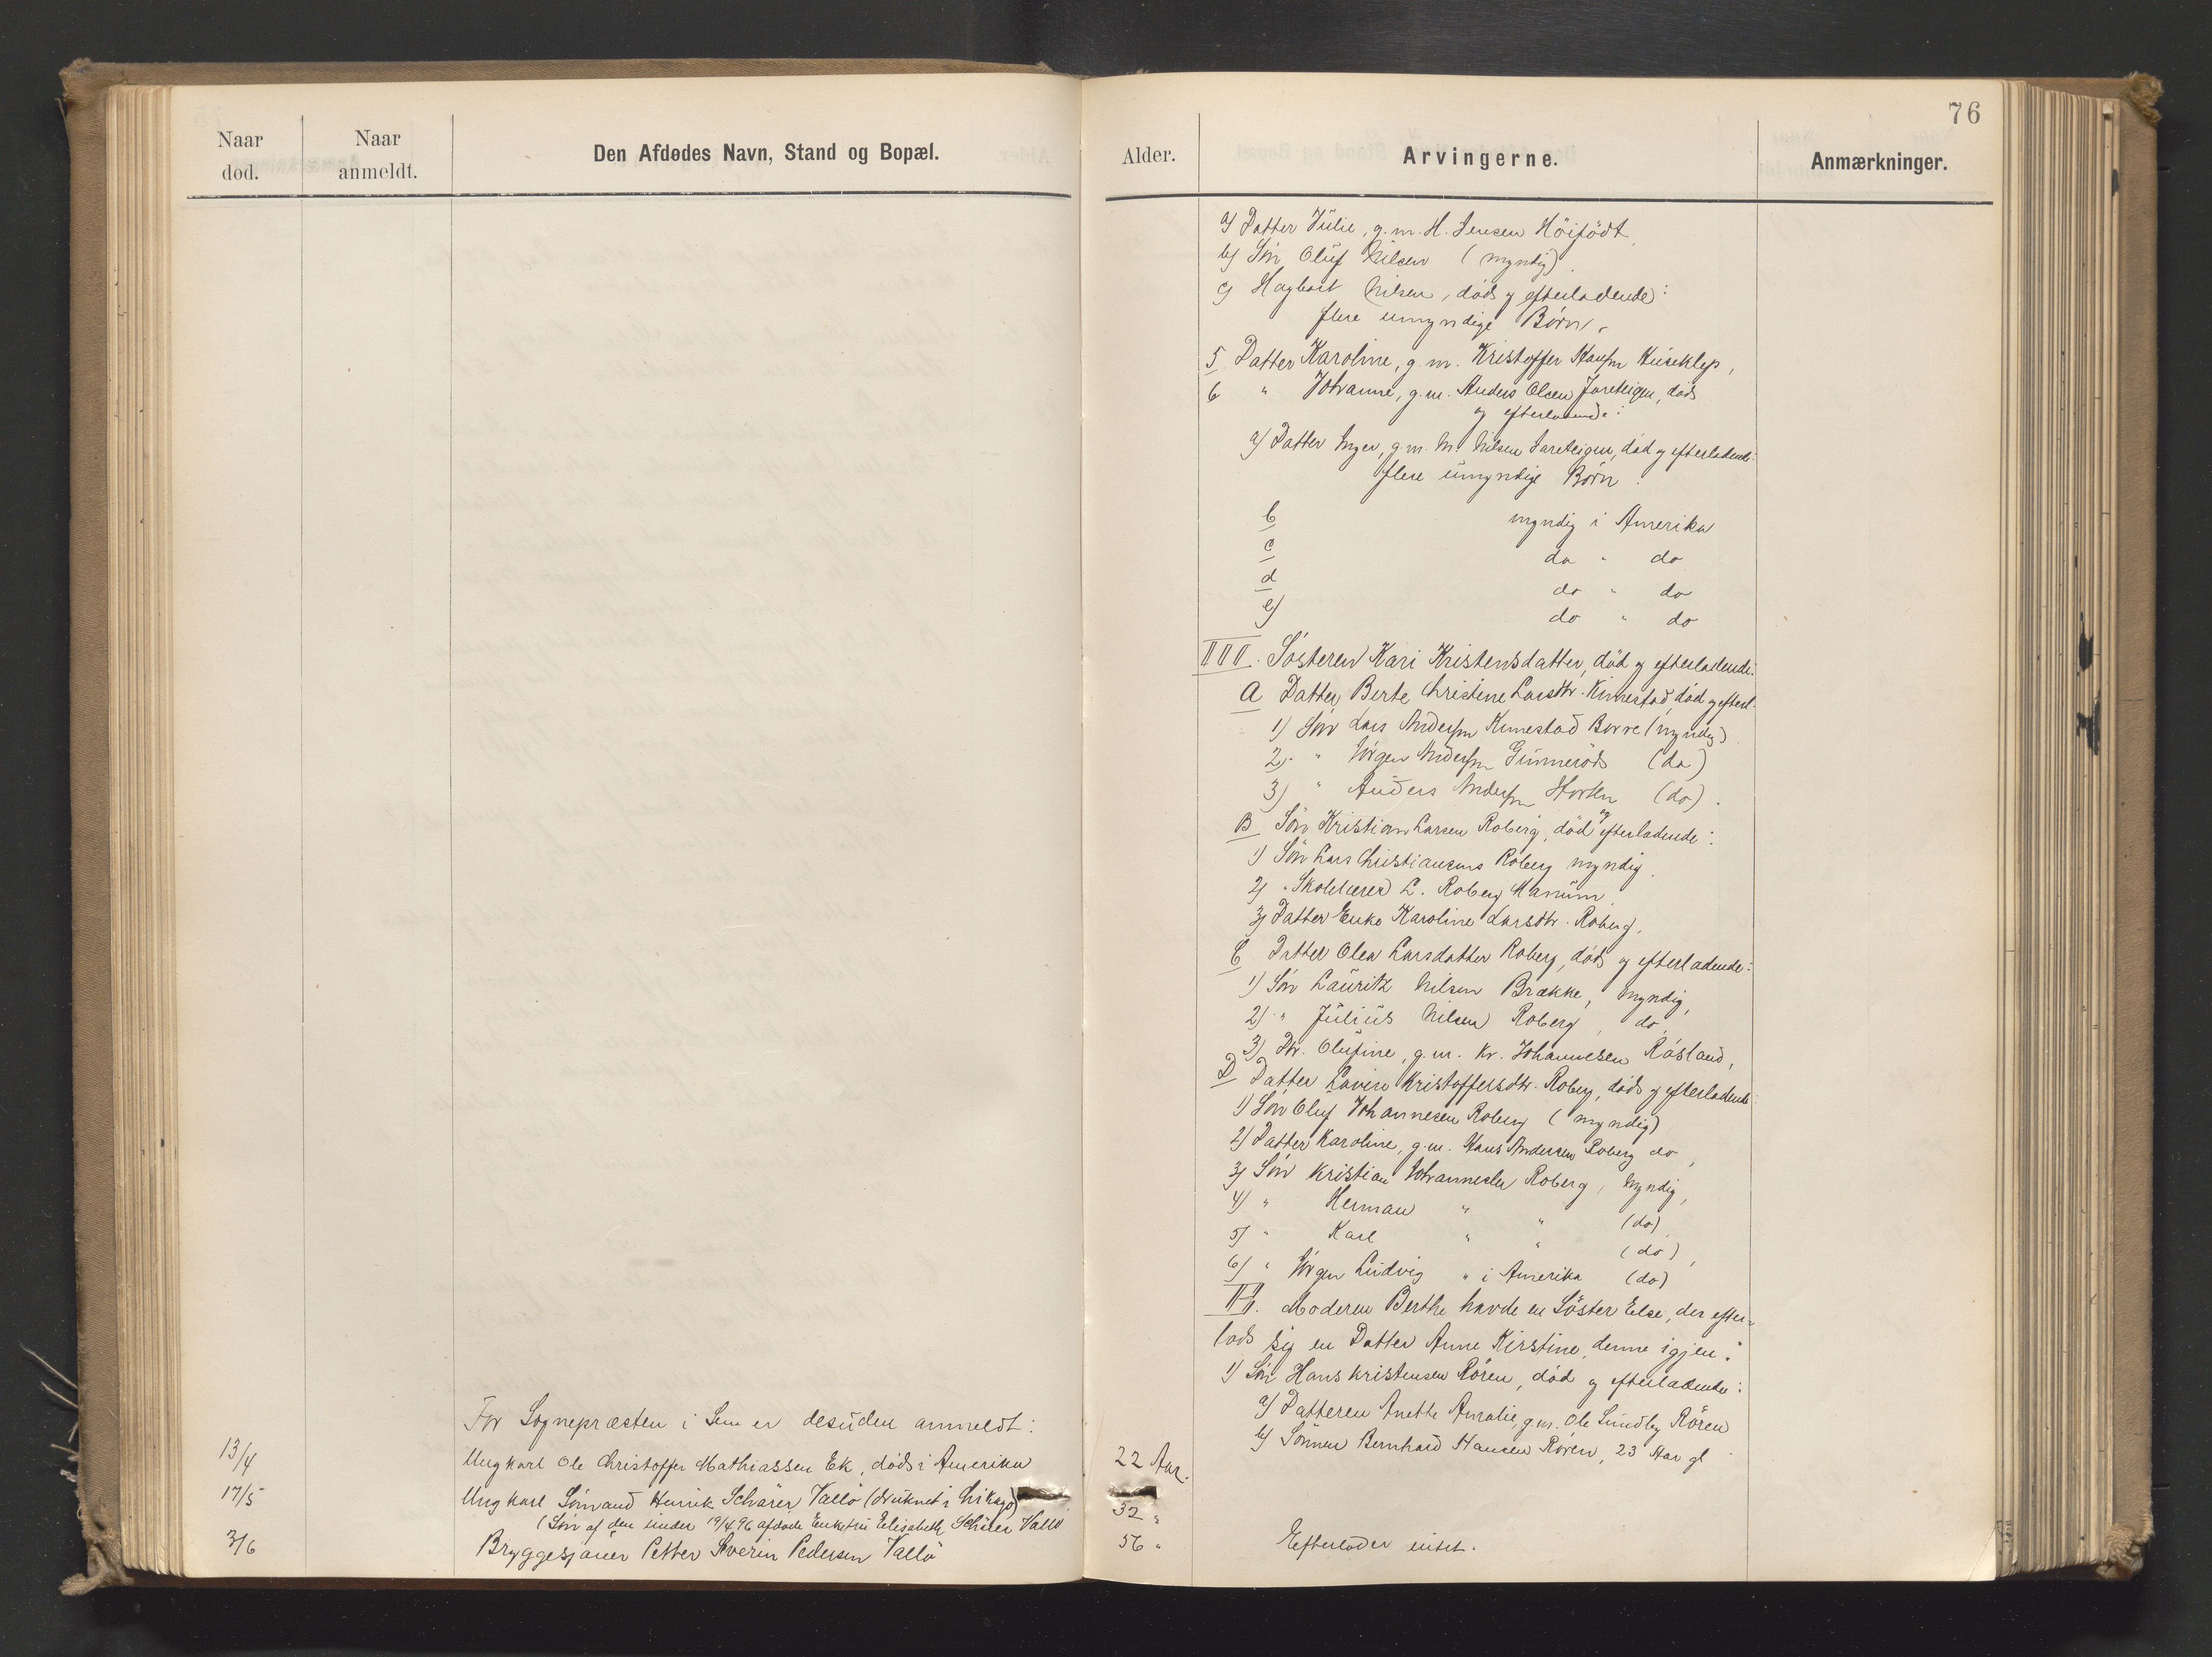 Naar død.
Naar anmeldt.
Den Afdødes Navn, Stand og Bopæl.
For Sognepræsten i Sem er desuden anmeldt:
13/4 Ungkarl Ole Christoffer Mathiassen Ek, død i Amerika
17/5 Ungkarl Sömand Henrik Schärer Vallö (druknet i Chikago)
(Sön af den under 19/4 96 afdøde Enkefru Elisabeth Schärer Vallö
3/6 Bryggesjauer Petter Severin Pedersen Vallö
76
Alder.
Arvingerne.
Anmærkninger.
a) Datter Julie, g. m. H. Jensen Höijödt
b) Sön Oluf Nilsen (myndig)
c) Hagbart Nilsen, död og efterladende:
flere umyndige Börn.
5 Datter Karoline, g. m. Kristoffer Hansen Kuseklep,
6 " Johanne, g. m. Anders Olsen Jareteigen, död
og efterladende:
a) Datter Inger, g. m. M. Nilsen Jareteigen, död og efterladende:
flere umyndige Börn.
b myndig i Amerika
c do " do
d do " do
e) do " do
III. Søsteren Kari Kristensdatter, död og efterladende:
A Datter Berte Christine Larsdtr. Kimestad, död og efterl.
1) Sön Lars Andersen Kimestad Borre (myndig)
2) " Jörgen Andersen Gunneröd (do)
3) " Anders Andersen Horten (do).
B Sön Kristian Larsen Roberg, död og efterladende:
1) Sön Lars Christiansens Roberg myndig.
2) " Skolelærer L. Roberg Manum.
3) Datter Enke Karoline Larsdtr. Roberg.
C Datter Olea Larsdatter Roberg, död og efterladende:
1) Sön Lauritz Nilsen Brække, myndig,
2) " Julius Nilsen Roberg, do,
3) Dtr. Olufine, g. m. Kr. Johannesen Råstad,
D Datter Lovise Kristoffersdtr. Roberg, död og efterladende:
1) Sön Oluf Johannesen Roberg (myndig)
2) Datter Karoline, g. m. Hans Andersen Roberg do,
3) Sön Kristian Johannesen Roberg, myndig,
4) " Herman " " (do),
5) " Karl " " (do),
6) " Jörgen Ludvig " i Amerika (do)
IV. Moderen Berthe havde en Söster Else, der efter-
lod sig en Datter Anne Kirstine, denne igjen:
1) Sön Hans Kristensen Rören, död og efterladende:
a) Datteren Anette Amalie, g. m. Ole Lundby Rören
b) Sönnen Bernhard Hansen Rören, 23 Aar gl
22 Aar.
32 "
56 " Efterlader intet.